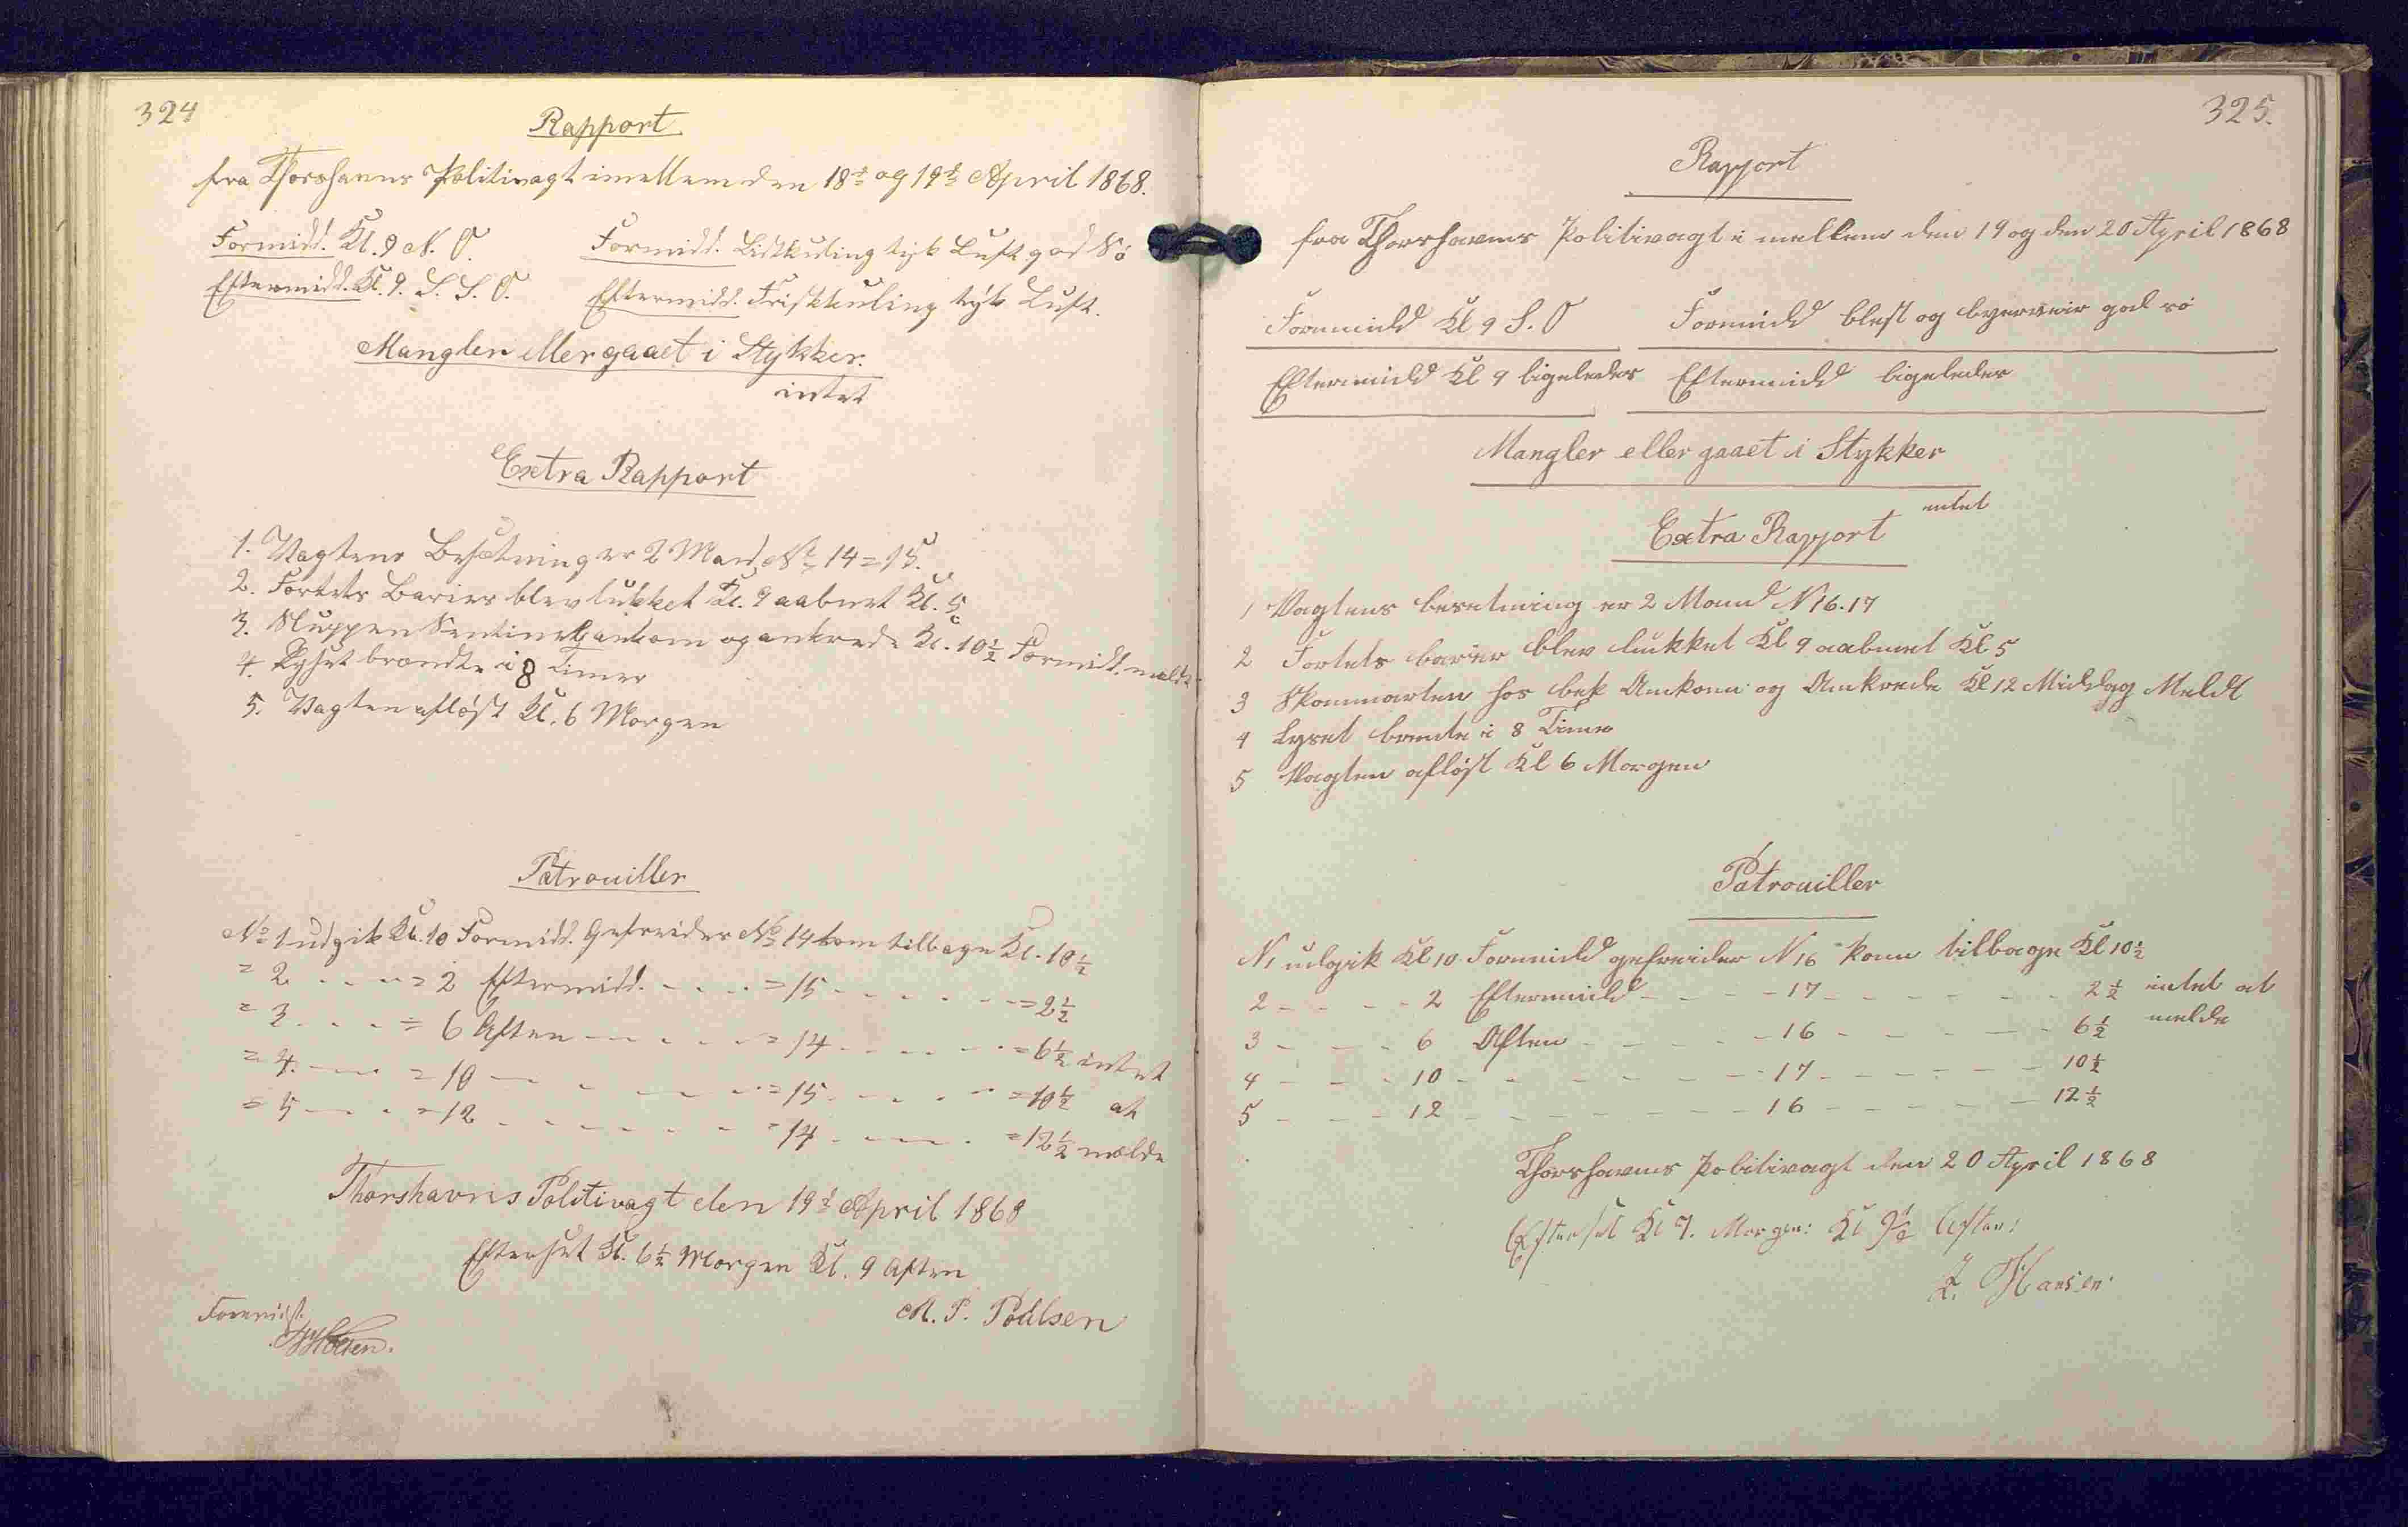 324
Rapport
fra Thorshavns Politivagt imellem den 18de og 19de April 1868.
Formidd. Kl. 9 N. O. Formidd. Lidtkuling tyk Luft god Sø
Eftermidd. Kl. 9. S. S. O. Eftermidd. Friskkuling tyk Luft.
Mangler eller gaaet i Stykker.
intet
Extra Rapport
1. Vagtens Besætning er 2 Mand No 14 = 15.
2. Fortets Barier blev lukket Kl. 9 aabnet Kl. 5
3. Sluppen Sentinel ankom og ankrede Kl. 10½ Formidd. meldt
4. Lyset brændte i 8 Timer
5. Vagten afløst Kl. 6 Morgen
Patrouiller
No 1 udgik Kl. 10 Formidd. Gefreider No 14 kom tilbage Kl. 10½
= 2 - - - = 2 Eftermidd. - - - = 15 - - - - - = 2½
= 3 - - - = 6 Aften - - - - = 14 - - - - - = 6½ intet
= 4 - - - = 10 - - - - - = 15 - - - - = 10½ at
= 5 - - - = 12 - - - - - = 14 - - - - = 12½ melde
Thorshavns Politivagt den 19de April 1868
Efterset Kl. 6½ Morgen Kl. 9 Aften
M. P. Poulsen
Forevist.
325.
Rapport
fra Thorshavns Politivagt i mellem den 19 og den 20 April 1868
Formidd Kl 9 S. O Formidd blest og byerveir god sø
Eftermidd Kl 9 ligeledes Eftermidd ligeledes
Mangler eller gaaet i Stykker
intet
Extra Rapport
1 Vagtens besetning er 2 Mand N 16. 17
2 Fortets barier blev lukket Kl 9 aabnet Kl 5
3 hos Ankom og Ankrede Kl 12 Middag Meldt
4 Lyset brente i 8 Timer
5 Vagten afløst Kl 6 Morgen
Patrouiller
N 1 udgik Kl 10 Formidd gefreider N 16 kom tilbage Kl 10½
2 - - - - 2 Eftermidd - - - - 17 - - - - - 2½ intet at
3 - - - - 6 Aften - - - - 16 - - - - - 6½ melde
4 - - - 10 - - - - - - 17 - - - - - 10½
5 - - - 12 - - - - - - 16 - - - - - 12½
Thorshavns Politivagt den 20 April 1868
Efterset Kl 7. Morgen: Kl 9½ Aften:
Hansen